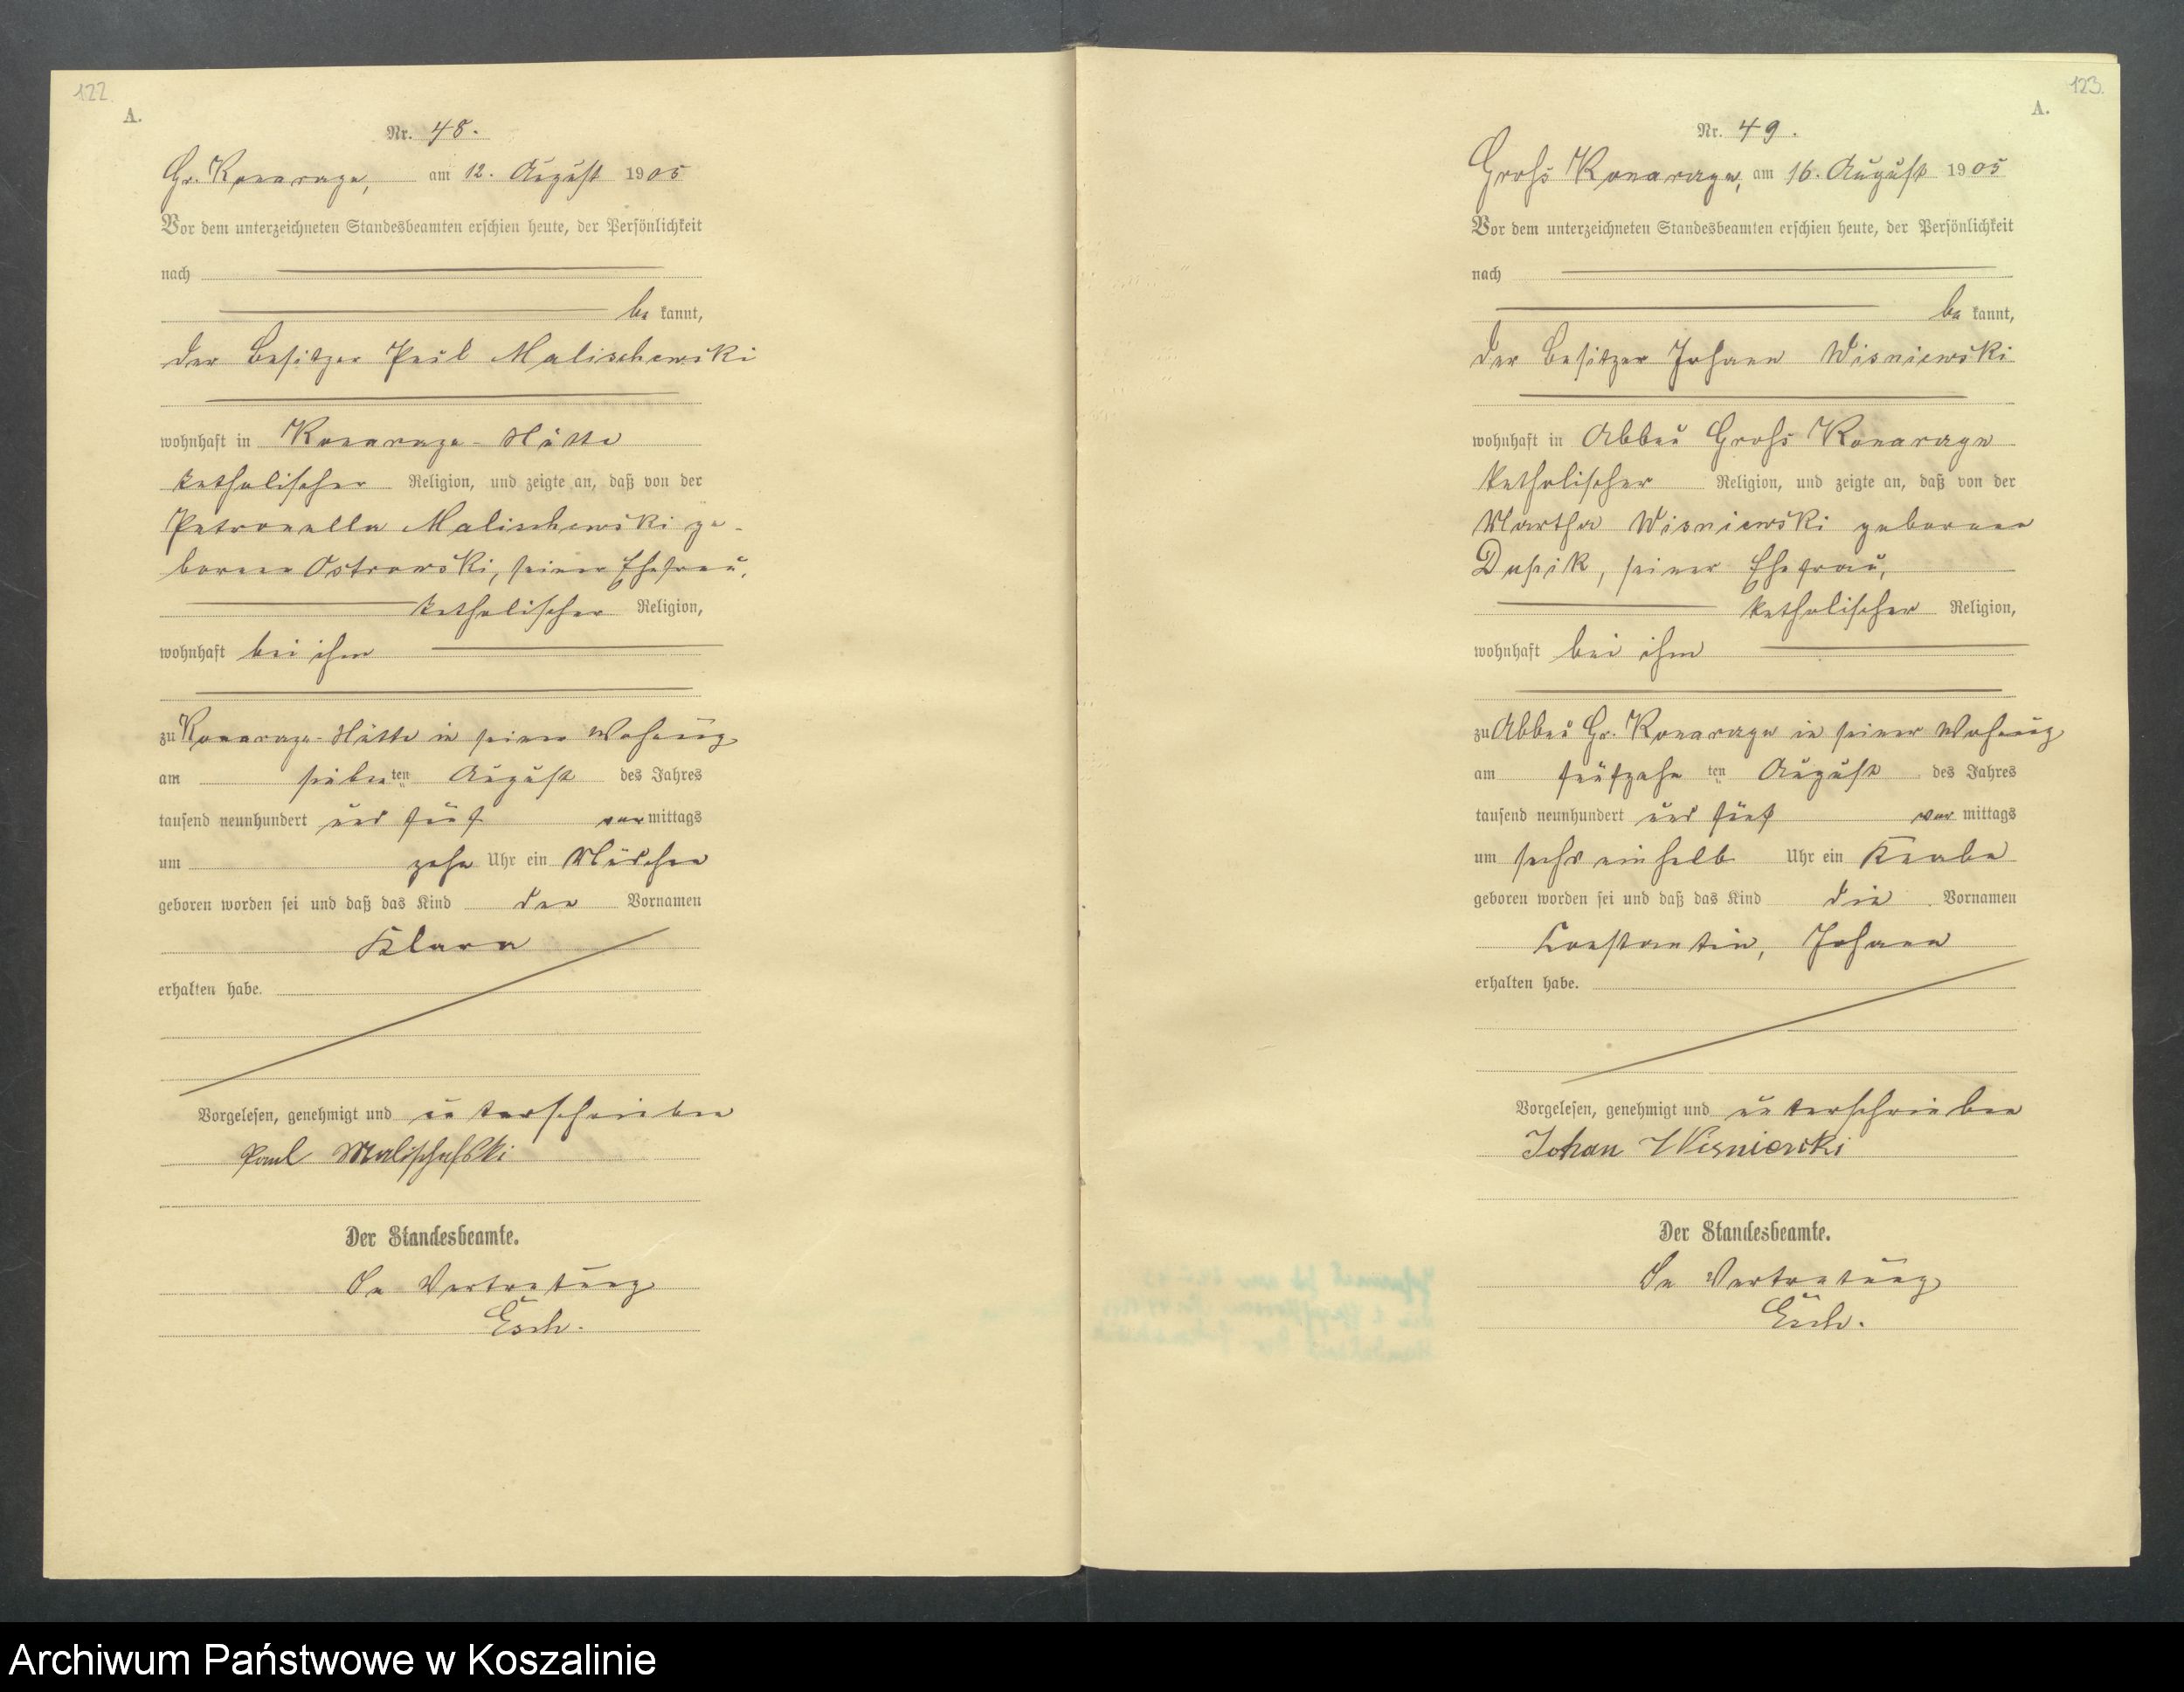 122.
A.
Nr. 48.
Gr. Konarczyn, am 12. August 1905
Vor dem unterzeichneten Standesbeamten erschien heute, der Persönlichkeit
nach
be kannt,
der Besitzer Paul Malischewski
wohnhaft in
katholischer Religion, und zeigte an, daß von der
Petronella Malischewski ge-
borenen Ostrowski, seiner Ehefrau,
katholischer Religion,
wohnhaft bei ihm
zu in seiner Wohnung
am siebenten August des Jahres
tausend neunhundert und fünf vormittags
um zehn Uhr ein Mädchen
geboren worden sei und daß das Kind den Vornamen
Klara
erhalten habe.
Vorgelesen, genehmigt und unterschrieben
Paul
Der Standesbeamte.
In Vertretung
Esch.
123.
A.
Nr. 49.
Groß am 16. August 1905
Vor dem unterzeichneten Standesbeamten erschien heute, der Persönlichkeit
nach
be kannt,
der Besitzer Johann Wisniewski
wohnhaft in Abbau Groß
katholischer Religion, und zeigte an, daß von der
Martha Wisniewski geborenen
seiner Ehefrau,
katholischer Religion,
wohnhaft bei ihm
zu Abbau Gr. in seiner Wohnung
am fünfzehnten August des Jahres
tausend neunhundert und fünf vor mittags
um sechs einhalb Uhr ein Knabe
geboren worden sei und daß das Kind die Vornamen
Konstantin, Johann
erhalten habe.
Vorgelesen, genehmigt und unterschrieben
Johan Wisniewski
Der Standesbeamte.
In Vertretung
Esch.
Archiwum Państwowe w Koszalinie